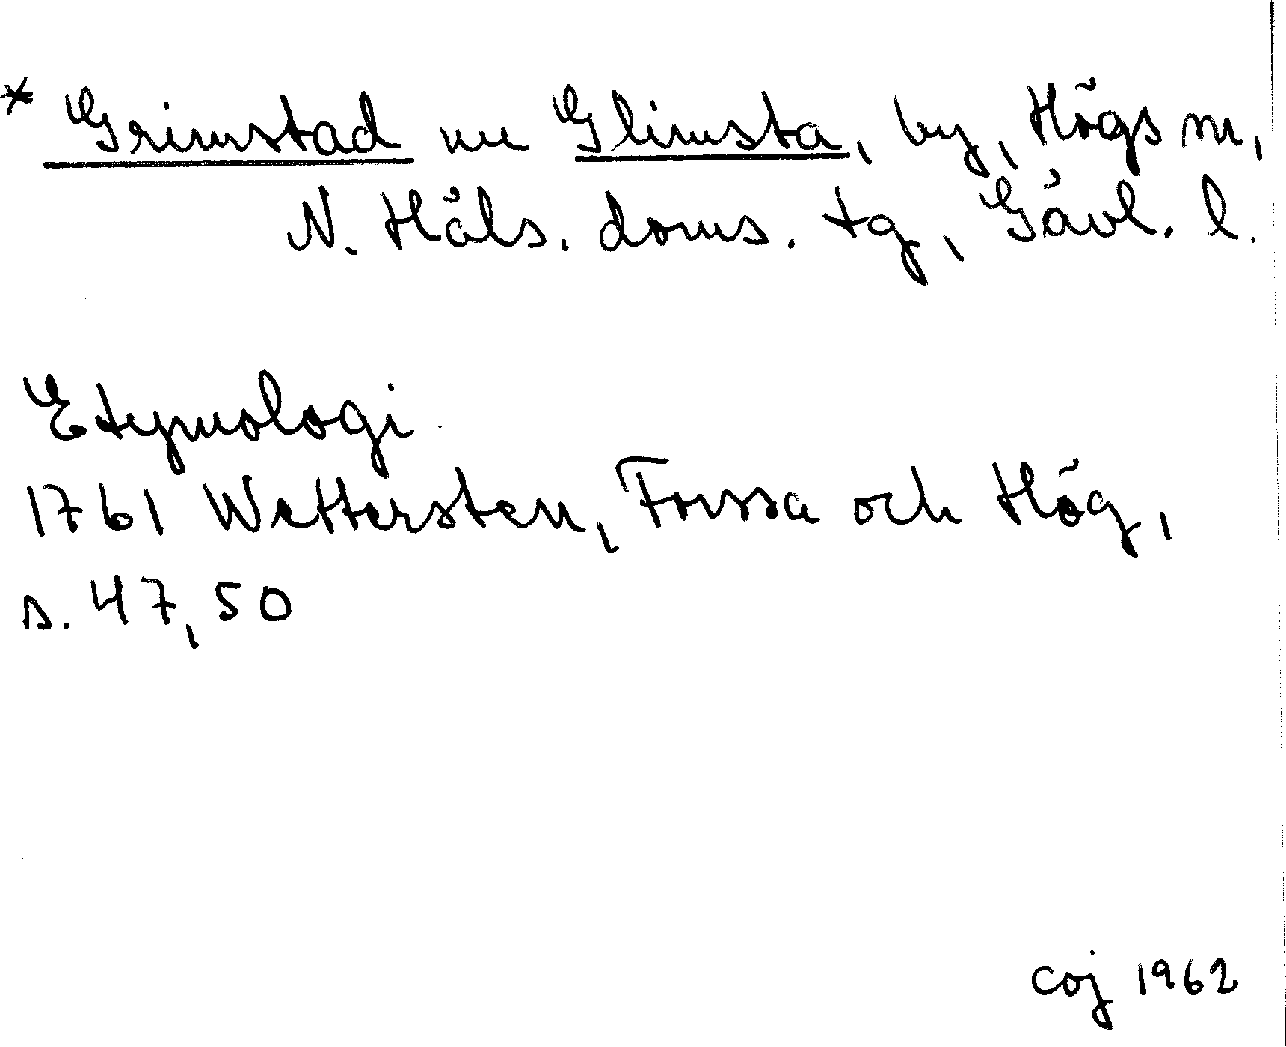 * Grimstad nu Glimsta, by, Högs sn,
N. Häls. doms. tg, Gävl. l.
Etymologi
1761 Wettersten, Forssa och Hög,
s. 47, 50
coj 1962